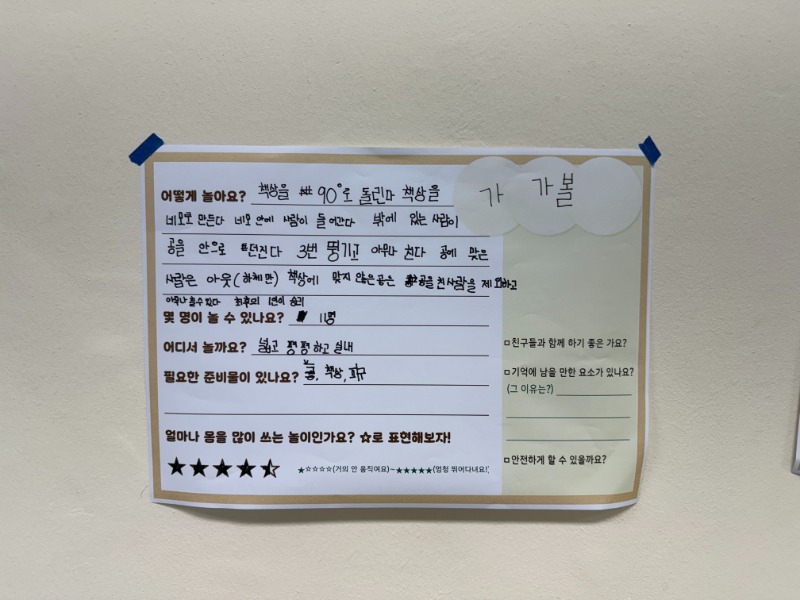 가 가볼
어떻게 놀아요? 책상을 90°로 돌린다 책상을
네모로 만든다 네모 안에 사람이 들어간다 밖에 있는 사람이
공을 안으로 던진다 3번 튕기고 아무나 친다 공에 맞은
사람은 아웃(하체만) 책상에 맞지 않은공은 공을 친사람을 제외하고
아무나 칠수있다 최후의 1인이 승리
몇 명이 놀 수 있나요? 11명
어디서 놀까요? 넓고 평평하고 실내
필요한 준비물이 있나요? 공, 책상,
얼마나 몸을 많이 쓰는 놀이인가요? ☆로 표현해보자!
★☆☆☆☆(거의 안 움직여요)~★★★★★(엄청 뛰어다녀요!)
□친구들과 함께 하기 좋은 가요?
□기억에 남을 만한 요소가 있나요?
(그 이유는?)
□안전하게 할 수 있을까요?